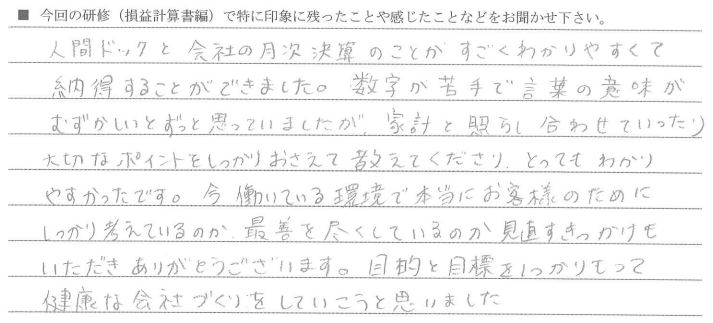 ■ 今回の研修（損益計算書編）で特に印象に残ったことや感じたことなどをお聞かせ下さい。
人間ドックと会社の月次決算のことがすごくわかりやすくて
納得することができました。数字が苦手で言葉の意味が
むずかしいとずっと思っていましたが、家計と照らし合わせていったり
大切なポイントをしっかりおさえて教えてくださり、とってもわかり
やすかったです。今働いている環境で本当にお客様のために
しっかり考えているのか、最善を尽くしているのか見直すきっかけも
いただきありがとうございます。目的と目標をしっかりもって
健康な会社づくりをしていこうと思いました